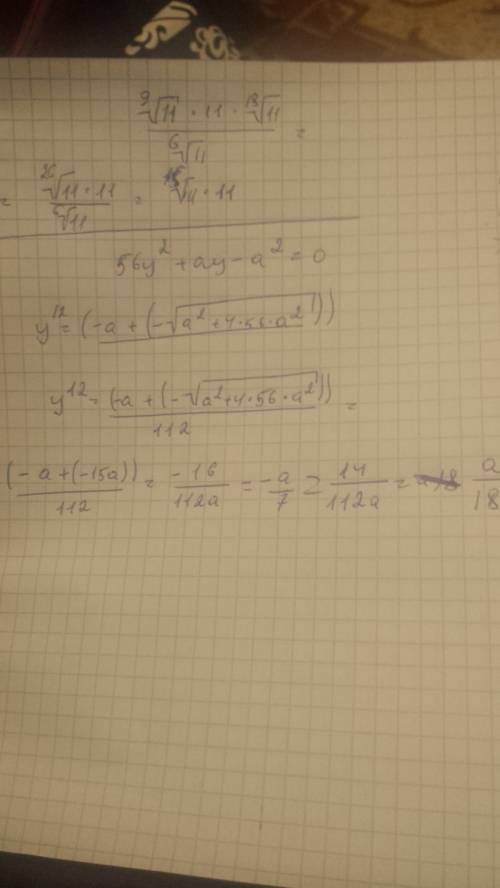 ⁹√11 · 11 · ¹⁸√11
⁶√11 =
= ²⁶√11 · 11 / ⁶√11 = √11 · 11
56y² + ay - a² = 0
y¹² = (-a + (-√a² + 4·56·a²))
y¹² = (-a + (-√a² + 4·56·a²)) / 112 =
(-a + (-15a)) / 112 = -16 / 112a = -a / 7 ≥ 14 / 112a = a / 18